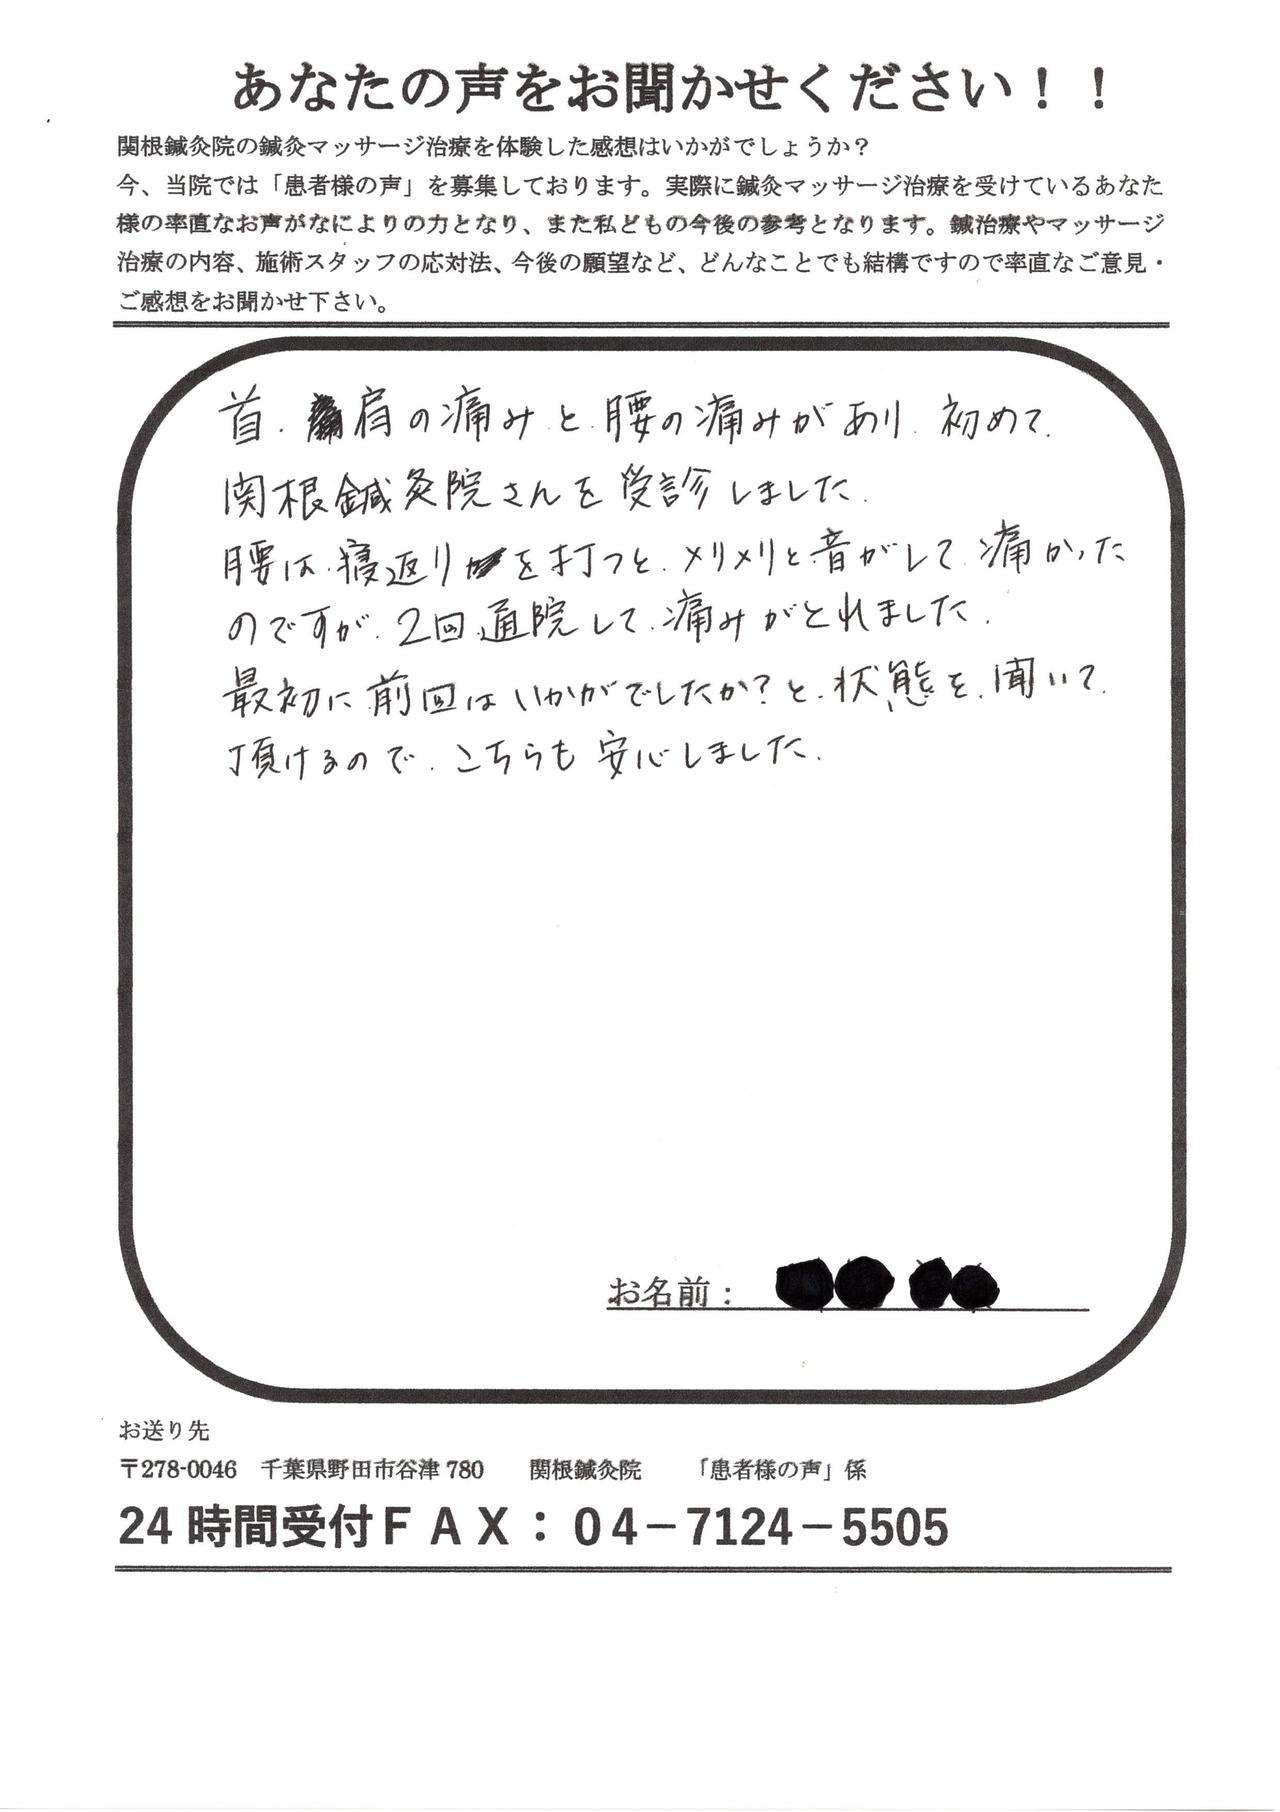 あなたの声をお聞かせください！！
関根鍼灸院の鍼灸マッサージ治療を体験した感想はいかがでしょうか？
今、当院では「患者様の声」を募集しております。実際に鍼灸マッサージ治療を受けているあなた
様の率直なお声がなによりの力となり、また私どもの今後の参考となります。鍼治療やマッサージ
治療の内容、施術スタッフの応対法、今後の願望など、どんなことでも結構ですので率直なご意見・
ご感想をお聞かせ下さい。
首、肩の痛みと、腰の痛みがあり、初めて、
関根鍼灸院さんを受診しました。
腰は、寝返りを打つと、メリメリと音がして、痛かった
のですが、2回通院して、痛みがとれました。
最初に前回はいかがでしたか？と、状態を、聞いて、
頂けるので、こちらも安心しました。
お名前：
お送り先
〒278-0046　千葉県野田市谷津 780　　関根鍼灸院　　「患者様の声」係
24 時間受付ＦＡＸ：０４－7124－5505